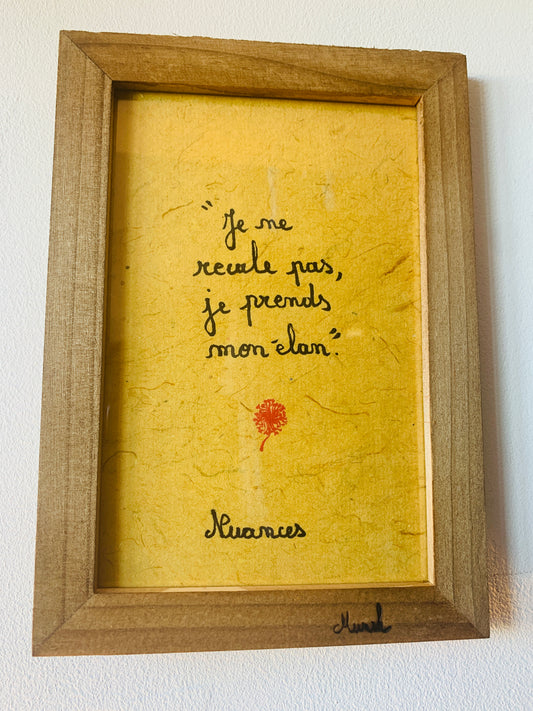 "Je ne
recule pas,
je prends
mon élan."
Nuances